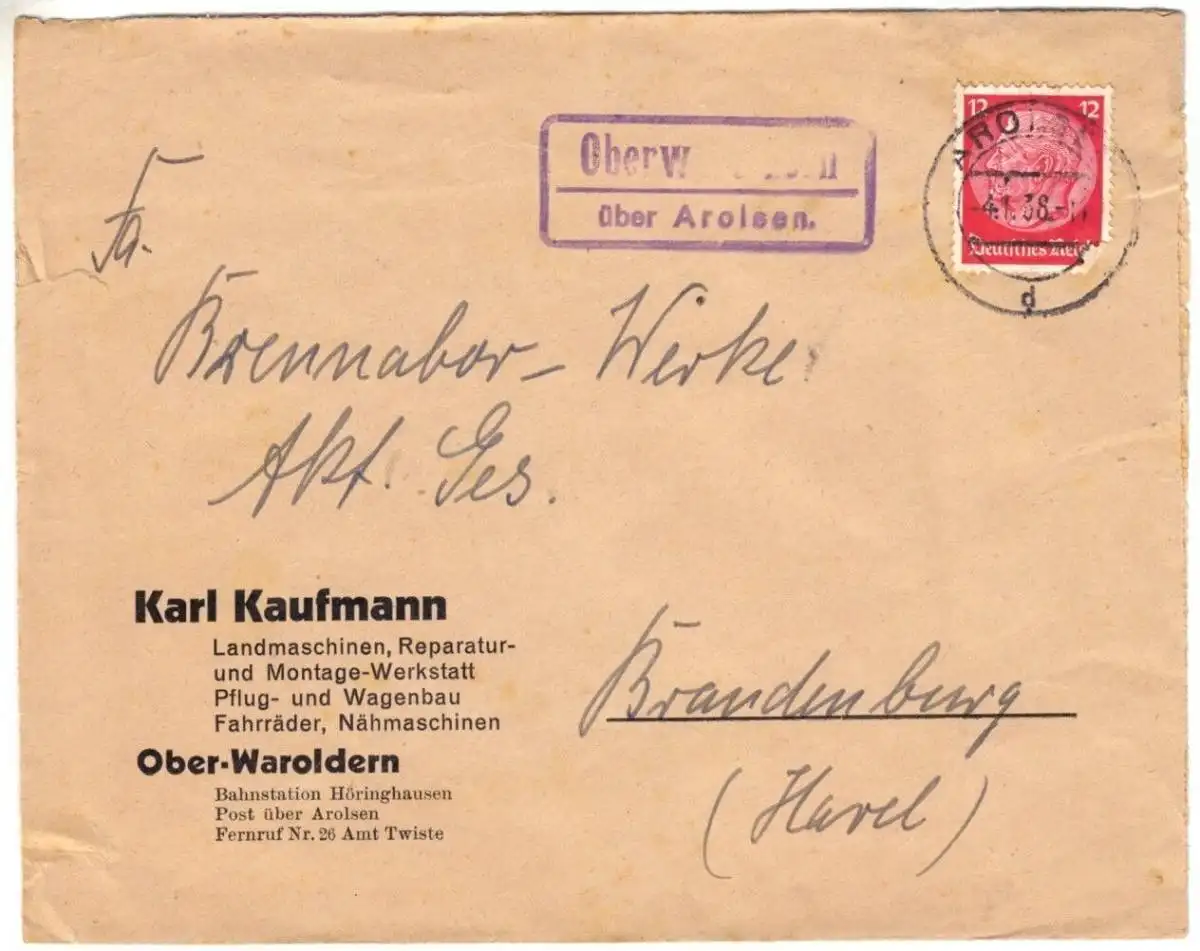 über Arolsen.
12 12
AROLSEN
4.1.38.-
Deutsches Reich
d
Fa.
Brennabor-Werke
Akt. Ges.
Karl Kaufmann
Landmaschinen, Reparatur-
und Montage-Werkstatt
Pflug- und Wagenbau
Fahrräder, Nähmaschinen
Ober-Waroldern
Bahnstation Höringhausen
Post über Arolsen
Fernruf Nr. 26 Amt Twiste
Brandenburg
(Havel)